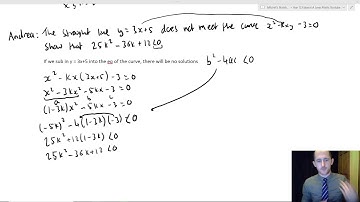 Andrew: The straight line y=3x+5 does not meet the curve x²-kxy-3=0
show that 25k²-36k+12<0.
If we sub in y = 3x+5 into the eq of the curve, there will be no solutions b²-4ac<0
x²-kx(3x+5)-3=0
x²-3kx²-5kx-3=0
a b c
(1-3k)x²-5kx-3=0
(-5k)²-4(1-3k)(-3)<0
25k²+12(1-3k)<0
25k²-36k+12<0